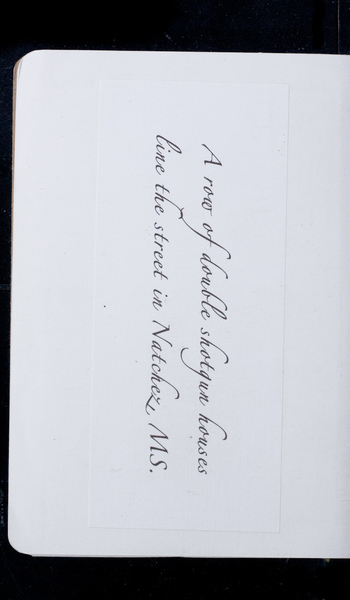 A row of double shotgun houses
line the street in Natchez, MS.